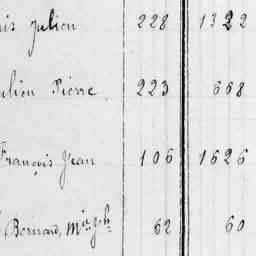 Julien 228 1322
Julien Pierre 223 668
François Jean 106 1626
Bernard, Mie Jph 62 60